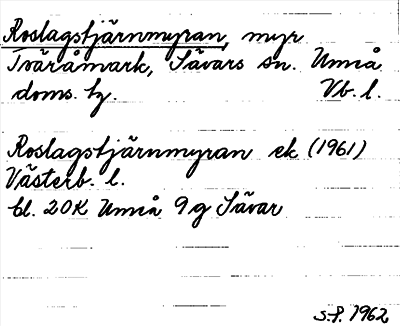 Roslagstjärnmyran, myr
Tväråmark, Sävars sn. Umeå
doms. hg. Vb. l.
Roslagstjärnmyran ek (1961)
Västerb. l.
bl. 20K Umeå 9g Sävar
S.F. 1962